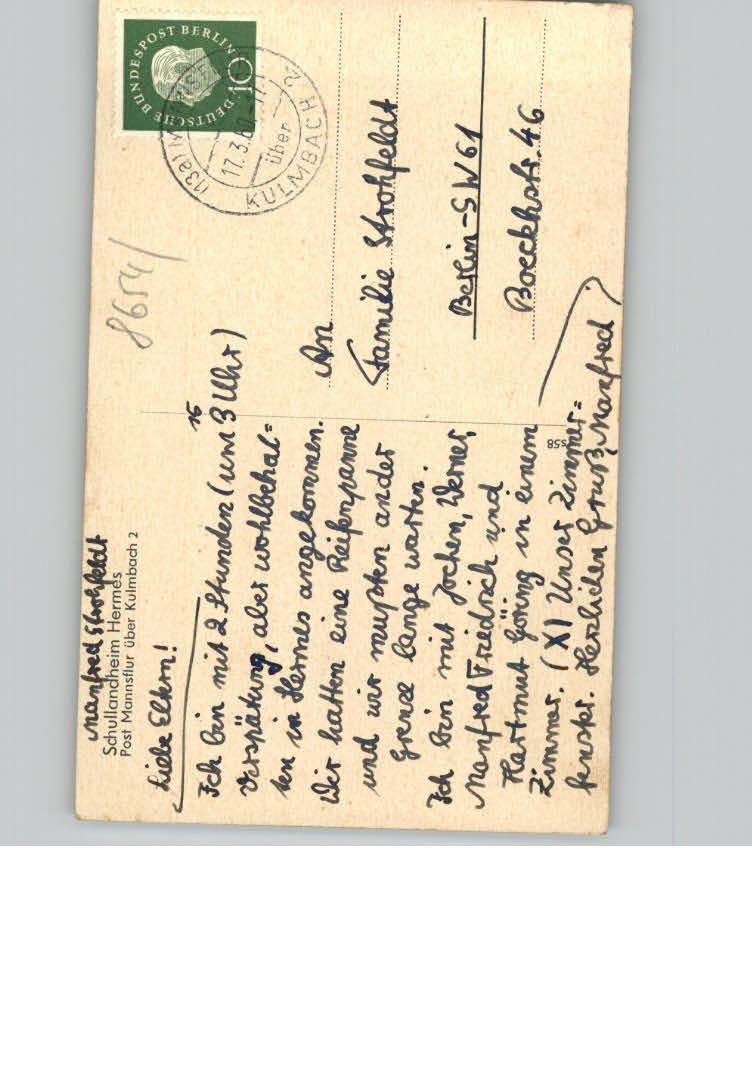 Manfred Strohfeldt
Schullandheim Hermes
Post Mannsflur über Kulmbach 2
Liebe Eltern!
Ich bin mit 2 Stunden (um 3 Uhr)
15
Verspätung, aber wohlbehal=
ten in Hermes angekommen.
Wir hatten eine Reifenpanne
und wir mußten an der
Grenze lange warten.
Ich bin mit Jochen, Werner,
Manfred Friedrich und
Hartmut Göring in einem
Zimmer. (X) Unser Zimmer=
fenster. Herzlichen Gruß, Manfred
8654/
DEUTSCHE BUNDESPOST BERLIN
10
(13a)
17.3.60
über
KULMBACH 2
An
Familie Strohfeldt
Berlin-SW61
Boeckhstr. 46
s58